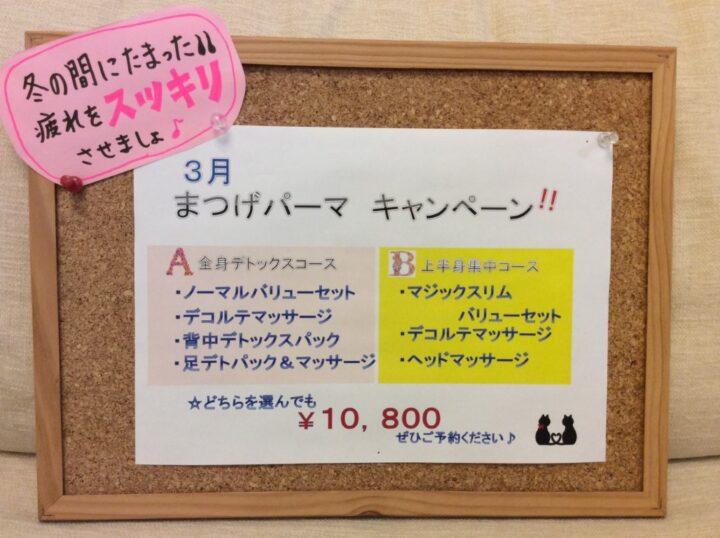 冬の間にたまった!!
疲れをスッキリ
させましょ♪
3月
まつげパーマ キャンペーン!!
A 全身デトックスコース
・ノーマルバリューセット
・デコルテマッサージ
・背中デトックスパック
・足デトパック&マッサージ
B 上半身集中コース
・マジックスリム
バリューセット
・デコルテマッサージ
・ヘッドマッサージ
☆どちらを選んでも
¥10,800
ぜひご予約ください♪